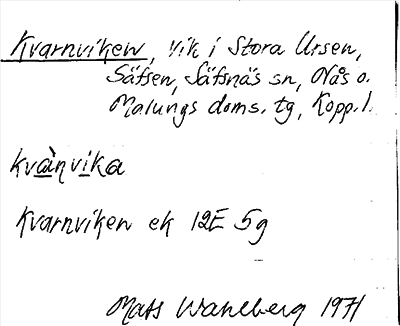 Kvarnviken, vik i Stora Ursen,
Säfsen, Säfsnäs sn, Nås o.
Malungs doms. tg, Kopp.l.
kvànvika
Kvarnviken ek 12E 5g
Mats Wahlberg 1971